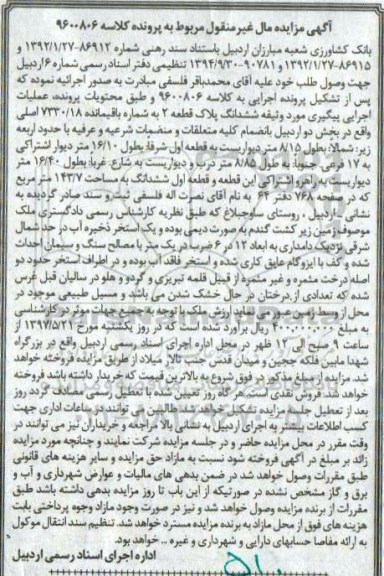 آگهی مزایده مال غیر منقول مربوط به پرونده کلاسه ۹۶۰۰۸۰۶
بانک کشاورزی شعبه مبارزان اردبیل باستناد سند رهنی شماره ۸۶۹۱۲-۱۳۹۲/۱/۲۷ و
۸۶۹۱۵-۱۳۹۲/۱/۲۷ و ۹۰۷۸۱-۱۳۹۴/۹/۳۰ تنظیمی دفتر اسناد رسمی شماره ۶ اردبیل
جهت وصول طلب خود علیه آقای محمدباقر فلسفی مبادرت به صدور اجرائیه نموده که
پس از تشکیل پرونده اجرایی به کلاسه ۹۶۰۰۸۰۶ و طبق محتویات پرونده، عملیات
اجرایی پیگیری مورد وثیقه ششدانگ پلاک قطعه ۲ به شماره باقیمانده ۷۳۳۰/۱۸ اصلی
واقع در بخش دو اردبیل بانضمام کلیه متعلقات و منضمات شرعیه و عرفیه با حدود اربعه
زیر: شمالا: بطول ۸/۱۵ متر دیواریست به قطعه اول شرقا: بطول ۱۶/۱۰ متر دیوار اشتراکی
به ۱۷ فرعی جنوبا: به طول ۸/۸۵ متر درب و دیواریست به شارع غربا: بطول ۱۶/۴۰ متر
دیواریست به راهرو اشتراکی این قطعه و قطعه اول ششدانگ به مساحت ۱۴۳/۷ متر مربع
که در صفحه ۷۶۸ دفتر ۶۲ به نام آقای نصرت اله فلسفی ثبت و سند صادر گردیده به
نشانی ـ اردبیل ، روستای ساوجبلاغ که طبق نظریه کارشناس رسمی دادگستری ملک
موصوف زمین زیر کشت گندم به صورت دیمی بوده و یک استخر ذخیره آب در حد شمال
شرقی نزدیک دامداری به ابعاد ۱۲ در ۶ ضرب در یک متر با مصالح سنگ و سیمان احداث
شده و کف با ایزوگام عایق کاری شده و استخر فاقد آب بوده و در اطراف استخر حدود دو
اصله درخت مثمره و غیر مثمره از قبیل قلمه تبریزی و گردو و هلو در سالیان قبل غرس
شده که تعدادی از درختان در حال خشک شدن می باشد و مسیل طبیعی موجود در
محل از وسط زمین عبور می نماید ارزش ملک با توجه به جمیع جهات موثر در کارشناسی
به مبلغ ۴۰۰,۰۰۰,۰۰۰ ریال برآورد شده است که در روز یکشنبه مورخ ۱۳۹۷/۵/۲۱ از
ساعت ۹ صبح الی ۱۲ ظهر در محل اداره اجرای اسناد رسمی اردبیل واقع در بزرگراه
شهدا مابین فلکه ججین و میدان قدس جنب تالار میلاد از طریق مزایده فروخته خواهد
شد. مزایده از مبلغ مذکور در فوق شروع به بالاترین قیمت که خریدار داشته باشد فروخته
خواهد شد. فروش نقدی است. هرگاه روز تعیین شده با تعطیل رسمی مصادف گردد روز
بعد از تعطیل جلسه مزایده تشکیل خواهد شد. طالبین می توانند در ساعات اداری جهت
کسب اطلاعات بیشتر به اجرای اردبیل به نشانی بالا مراجعه و خریداران نیز می توانند در
وقت مقرر در محل مزایده حاضر و در جلسه مزایده شرکت نمایند و چنانچه مورد مزایده
زائد بر مبلغ در آگهی فروخته شود نسبت به مازاد حق مزایده و سایر هزینه های قانونی
طبق مقررات وصول خواهد شد در ضمن بدهی های مالیات و عوارض شهرداری و آب و
برق و گاز مشخص نشده در صورتیکه از این باب تا روز مزایده بدهی داشته باشد طبق
مقررات از برنده مزایده وصول خواهد شد و نیز در صورت وجود مازاد وجوه پرداختی بابت
هزینه های فوق از محل مازاد به برنده مزایده مسترد خواهد شد. تنظیم سند انتقال موکول
به ارائه مفاصا حسابهای دارایی و شهرداری و غیره .. خواهد بود.
اداره اجرای اسناد رسمی اردبیل